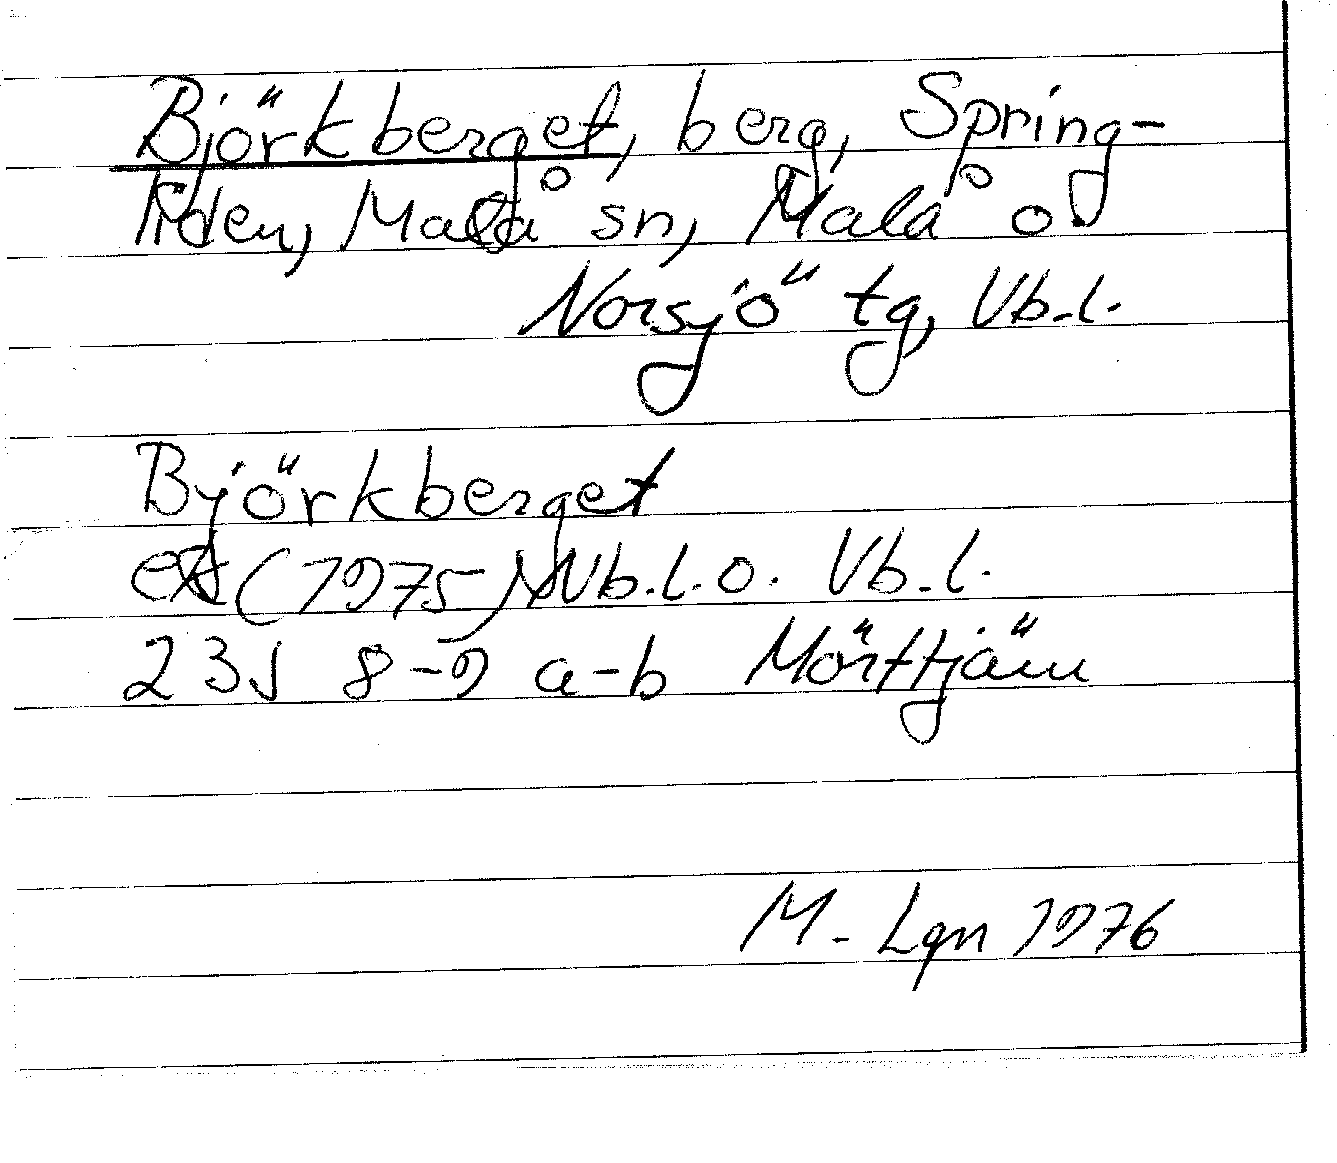 Björkberget, berg, Spring-
liden, Malå sn, Malå o.
Norsjö tg, Vb.l.
Björkberget
ek (1975) NVb.l.o. Vb.l.
23J 8-9 a-b Mörttjärn
M. Lgn 1976